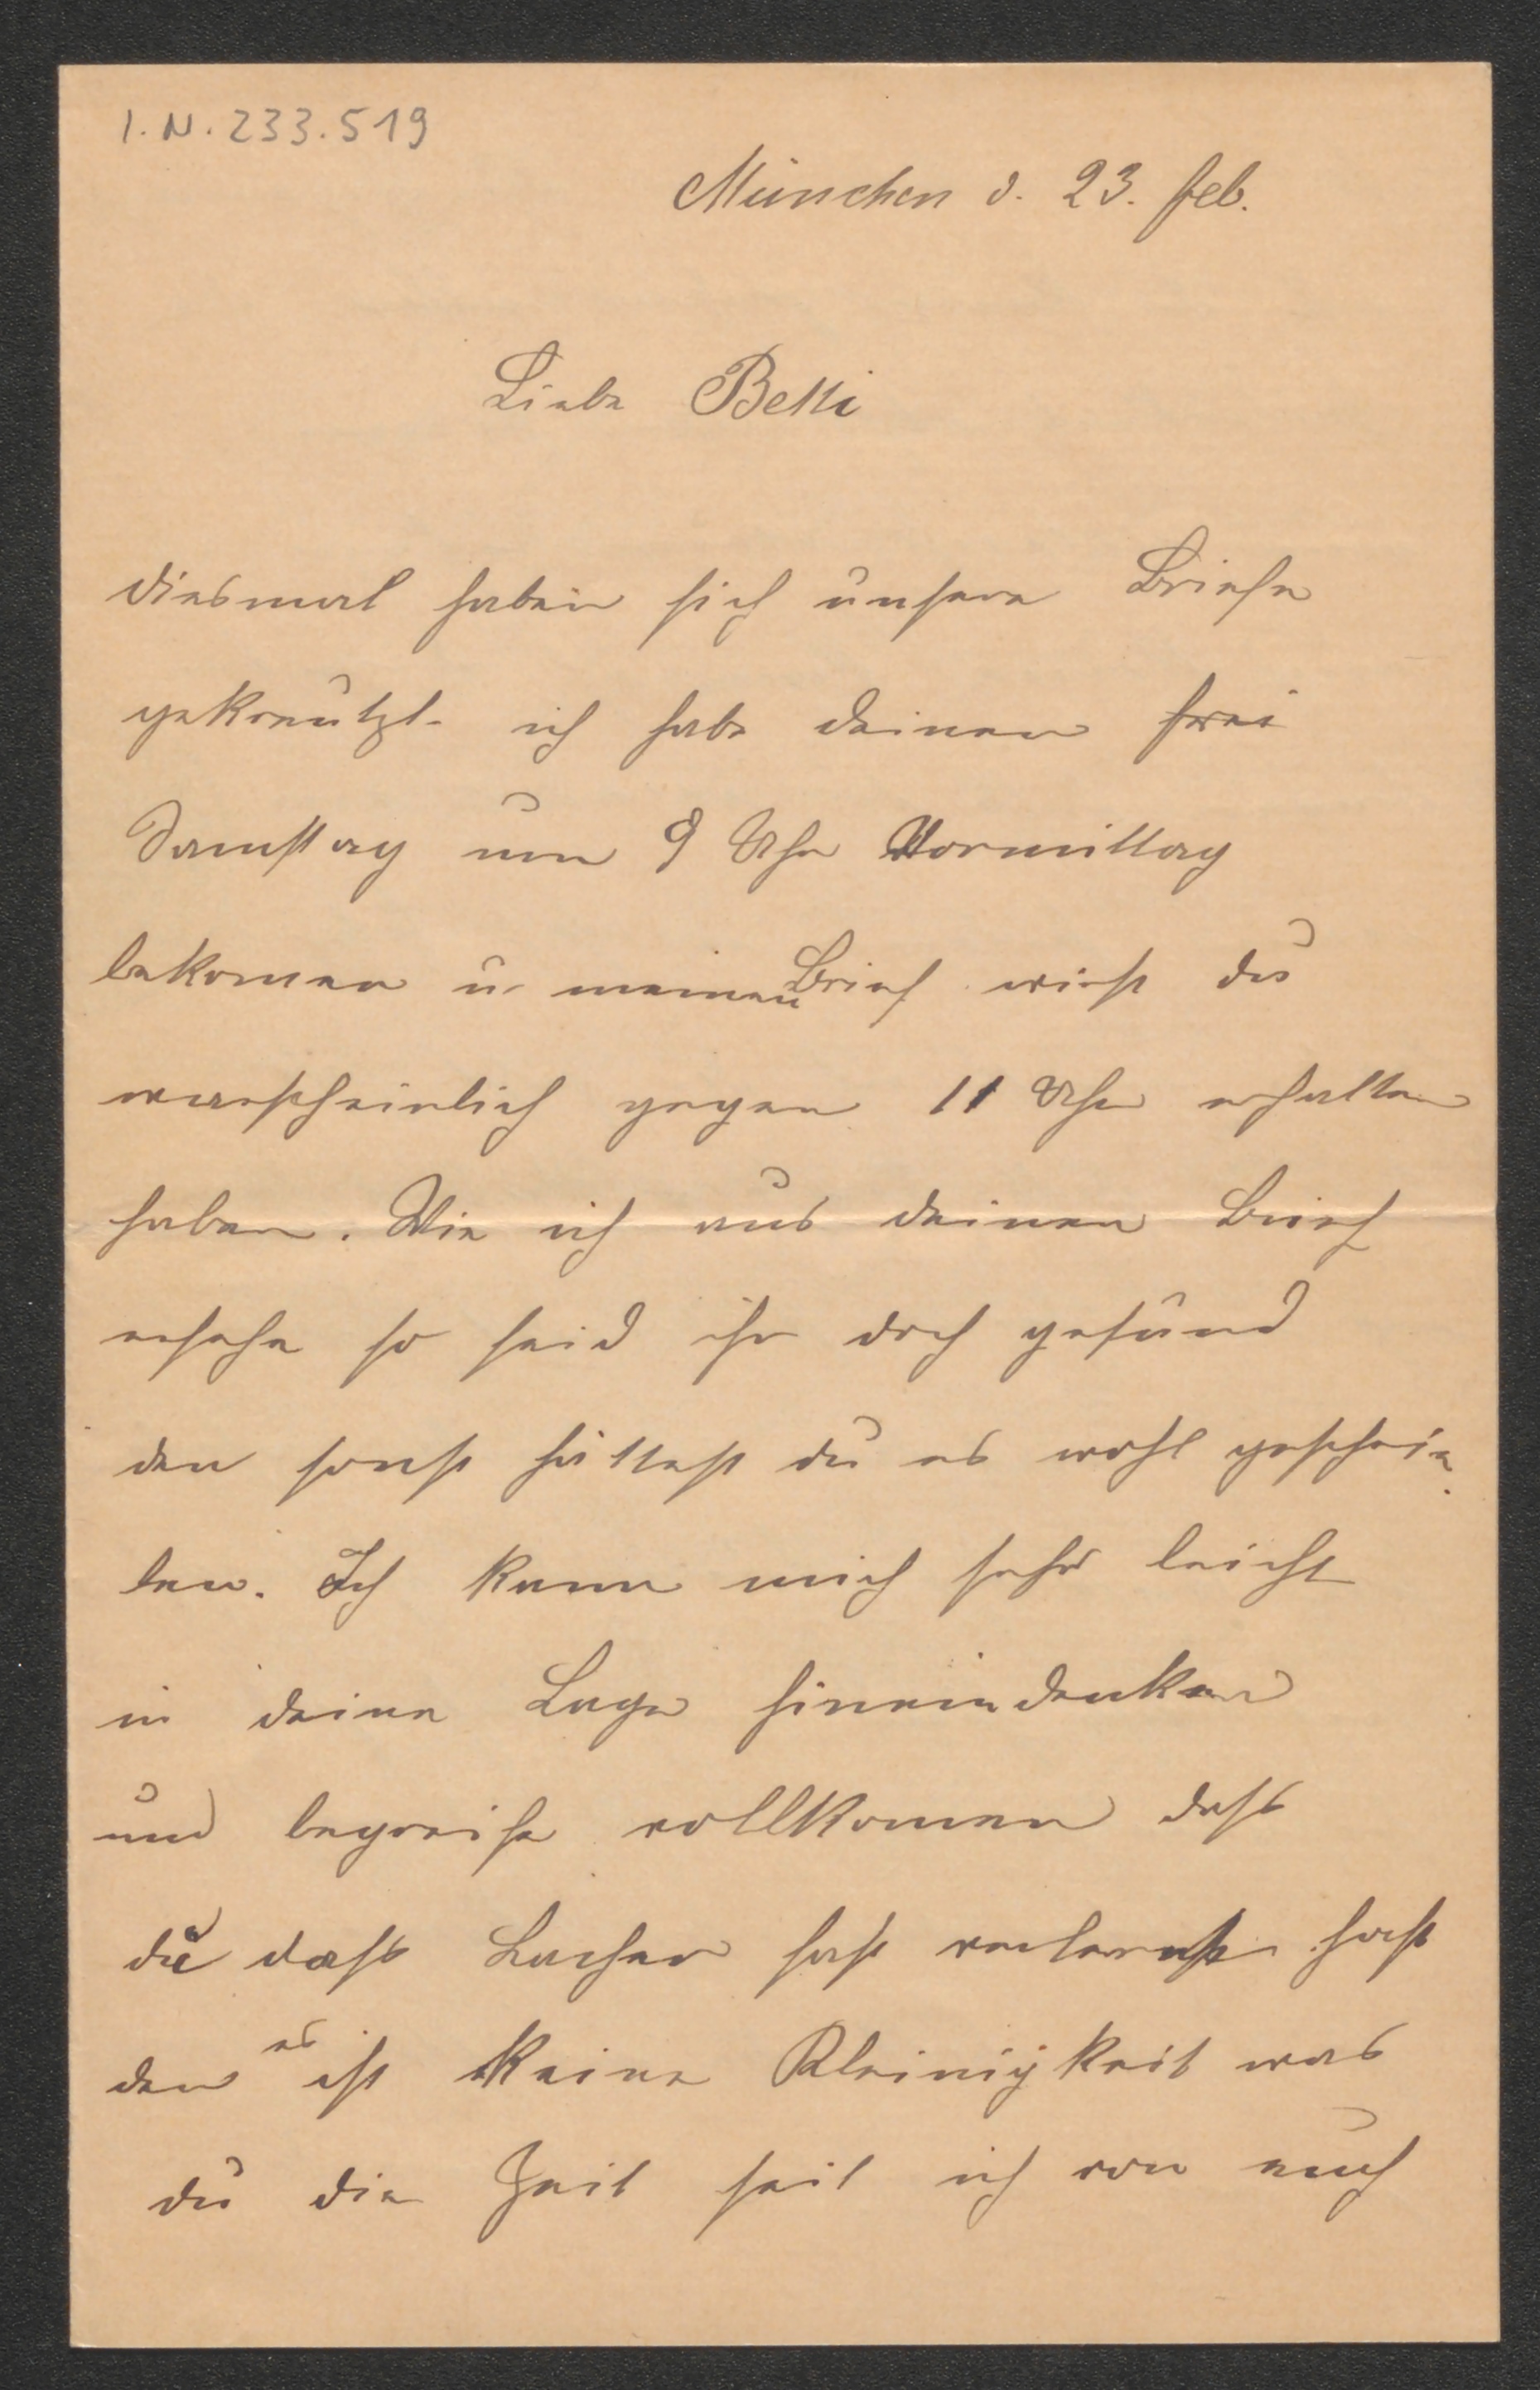 I.N. 233.519
München d. 23. feb.
Liebe Betti
diesmal haben sich unsere Briefe
gekreutzt ich habe deinen frei
Samstag um 9 Uhr Vormittag
bekomen u. meinen Brief wirst du
warscheinlich gegen 11 Uhr erhalten
haben. Wie ich aus deinen Brief
ersehe so seid ihr doch gesund
den sonst hättest du es wohl geschrie
ben. Ich kann mich sehr leicht
in deine Lage hineindenken
und begreife vollkomen dass
du dass Lachen fast verlernst hast
den es ist keine Kleinigkeit was
du die Zeit seit ich von euch